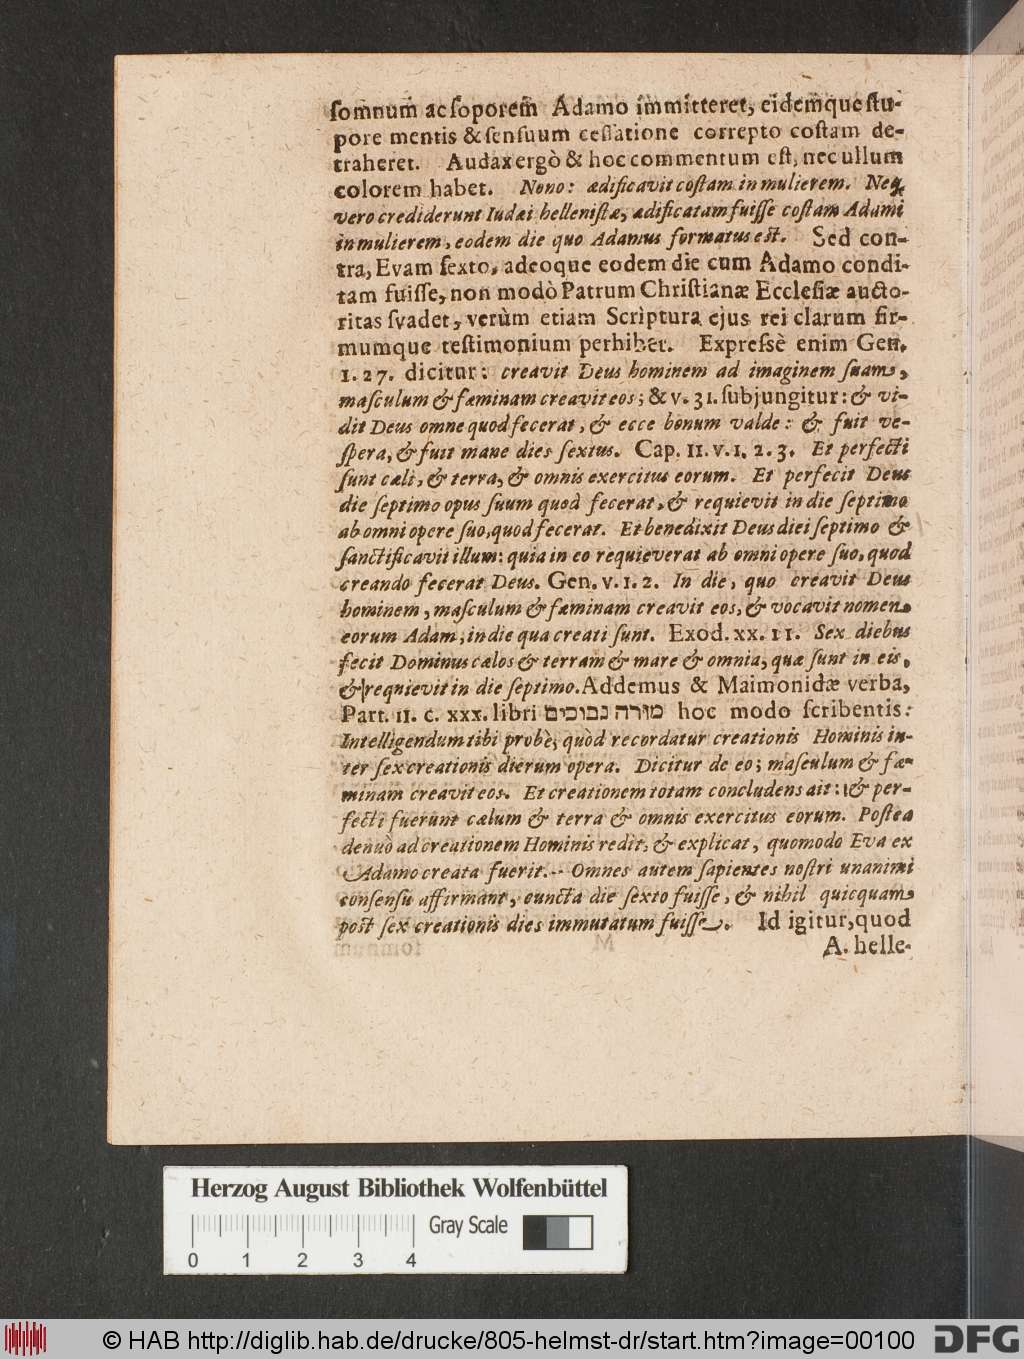 ſomnum ac ſoporem Adamo immitteret, eidemque ſtu-
pore mentis & ſenſuum ceſſatione correpto coſtam de-
traheret. Audax ergò & hoc commentum eſt, nec ullum
colorem habet. Nono: ædificavit coſtam in mulierem. Neq;
vero crediderunt Iudæi helleniſtæ, ædificatam fuiſſe coſtam Adami
in mulierem, eodem die quo Adamus formatus eſt. Sed con-
tra, Evam ſexto, adeoque eodem die cum Adamo condi-
tam fuiſſe, non modò Patrum Chriſtianæ Eccleſiæ aucto-
ritas ſvadet, verùm etiam Scriptura ejus rei clarum fir-
mumque teſtimonium perhibet. Expreſsè enim Gen.
1. 27. dicitur: creavit Deus hominem ad imaginem ſuam,
maſculum & fæminam creavit eos; & v. 31. ſubjungitur: & vi-
dit Deus omne quod fecerat, & ecce bonum valde: & fuit ve-
ſpera, & fuit mane dies ſextus. Cap. II. v. 1. 2. 3. Et perfecti
ſunt cæli, & terra, & omnis exercitus eorum. Et perfecit Deus
die ſeptimo opus ſuum quod fecerat, & requievit in die ſeptimo
ab omni opere ſuo, quod fecerat. Et benedixit Deus diei ſeptimo &
ſanctificavit illum: quia in eo requieverat ab omni opere ſuo, quod
creando fecerat Deus. Gen. v. 1. 2. In die, quo creavit Deus
hominem, maſculum & fæminam creavit eos, & vocavit nomen
eorum Adam; in die qua creati ſunt. Exod. xx. 11. Sex diebus
fecit Dominus cælos & terram & mare & omnia, quæ ſunt in eis,
& requievit in die ſeptimo. Addemus & Maimonidæ verba,
Part. II. c. xxx. libri מורה נבוכים hoc modo ſcribentis:
Intelligendum tibi probè, quòd recordatur creationis Hominis in-
ter ſex creationis dierum opera. Dicitur de eo; maſculum & fæ-
minam creavit eos. Et creationem totam concludens ait: & per-
fecti fuerunt cælum & terra & omnis exercitus eorum. Poſtea
denuò ad creationem Hominis redit, & explicat, quomodo Eva ex
Adamo creata fuerit. -- Omnes autem ſapientes noſtri unanimi
conſenſu affirmant, cuncta die ſexto fuiſſe, & nihil quicquam
poſt ſex creationis dies immutatum fuiſſe. Id igitur, quod
A. helle-
Herzog August Bibliothek Wolfenbüttel
Gray Scale
0 1 2 3 4
© HAB http://diglib.hab.de/drucke/805-helmst-dr/start.htm?image=00100
DFG